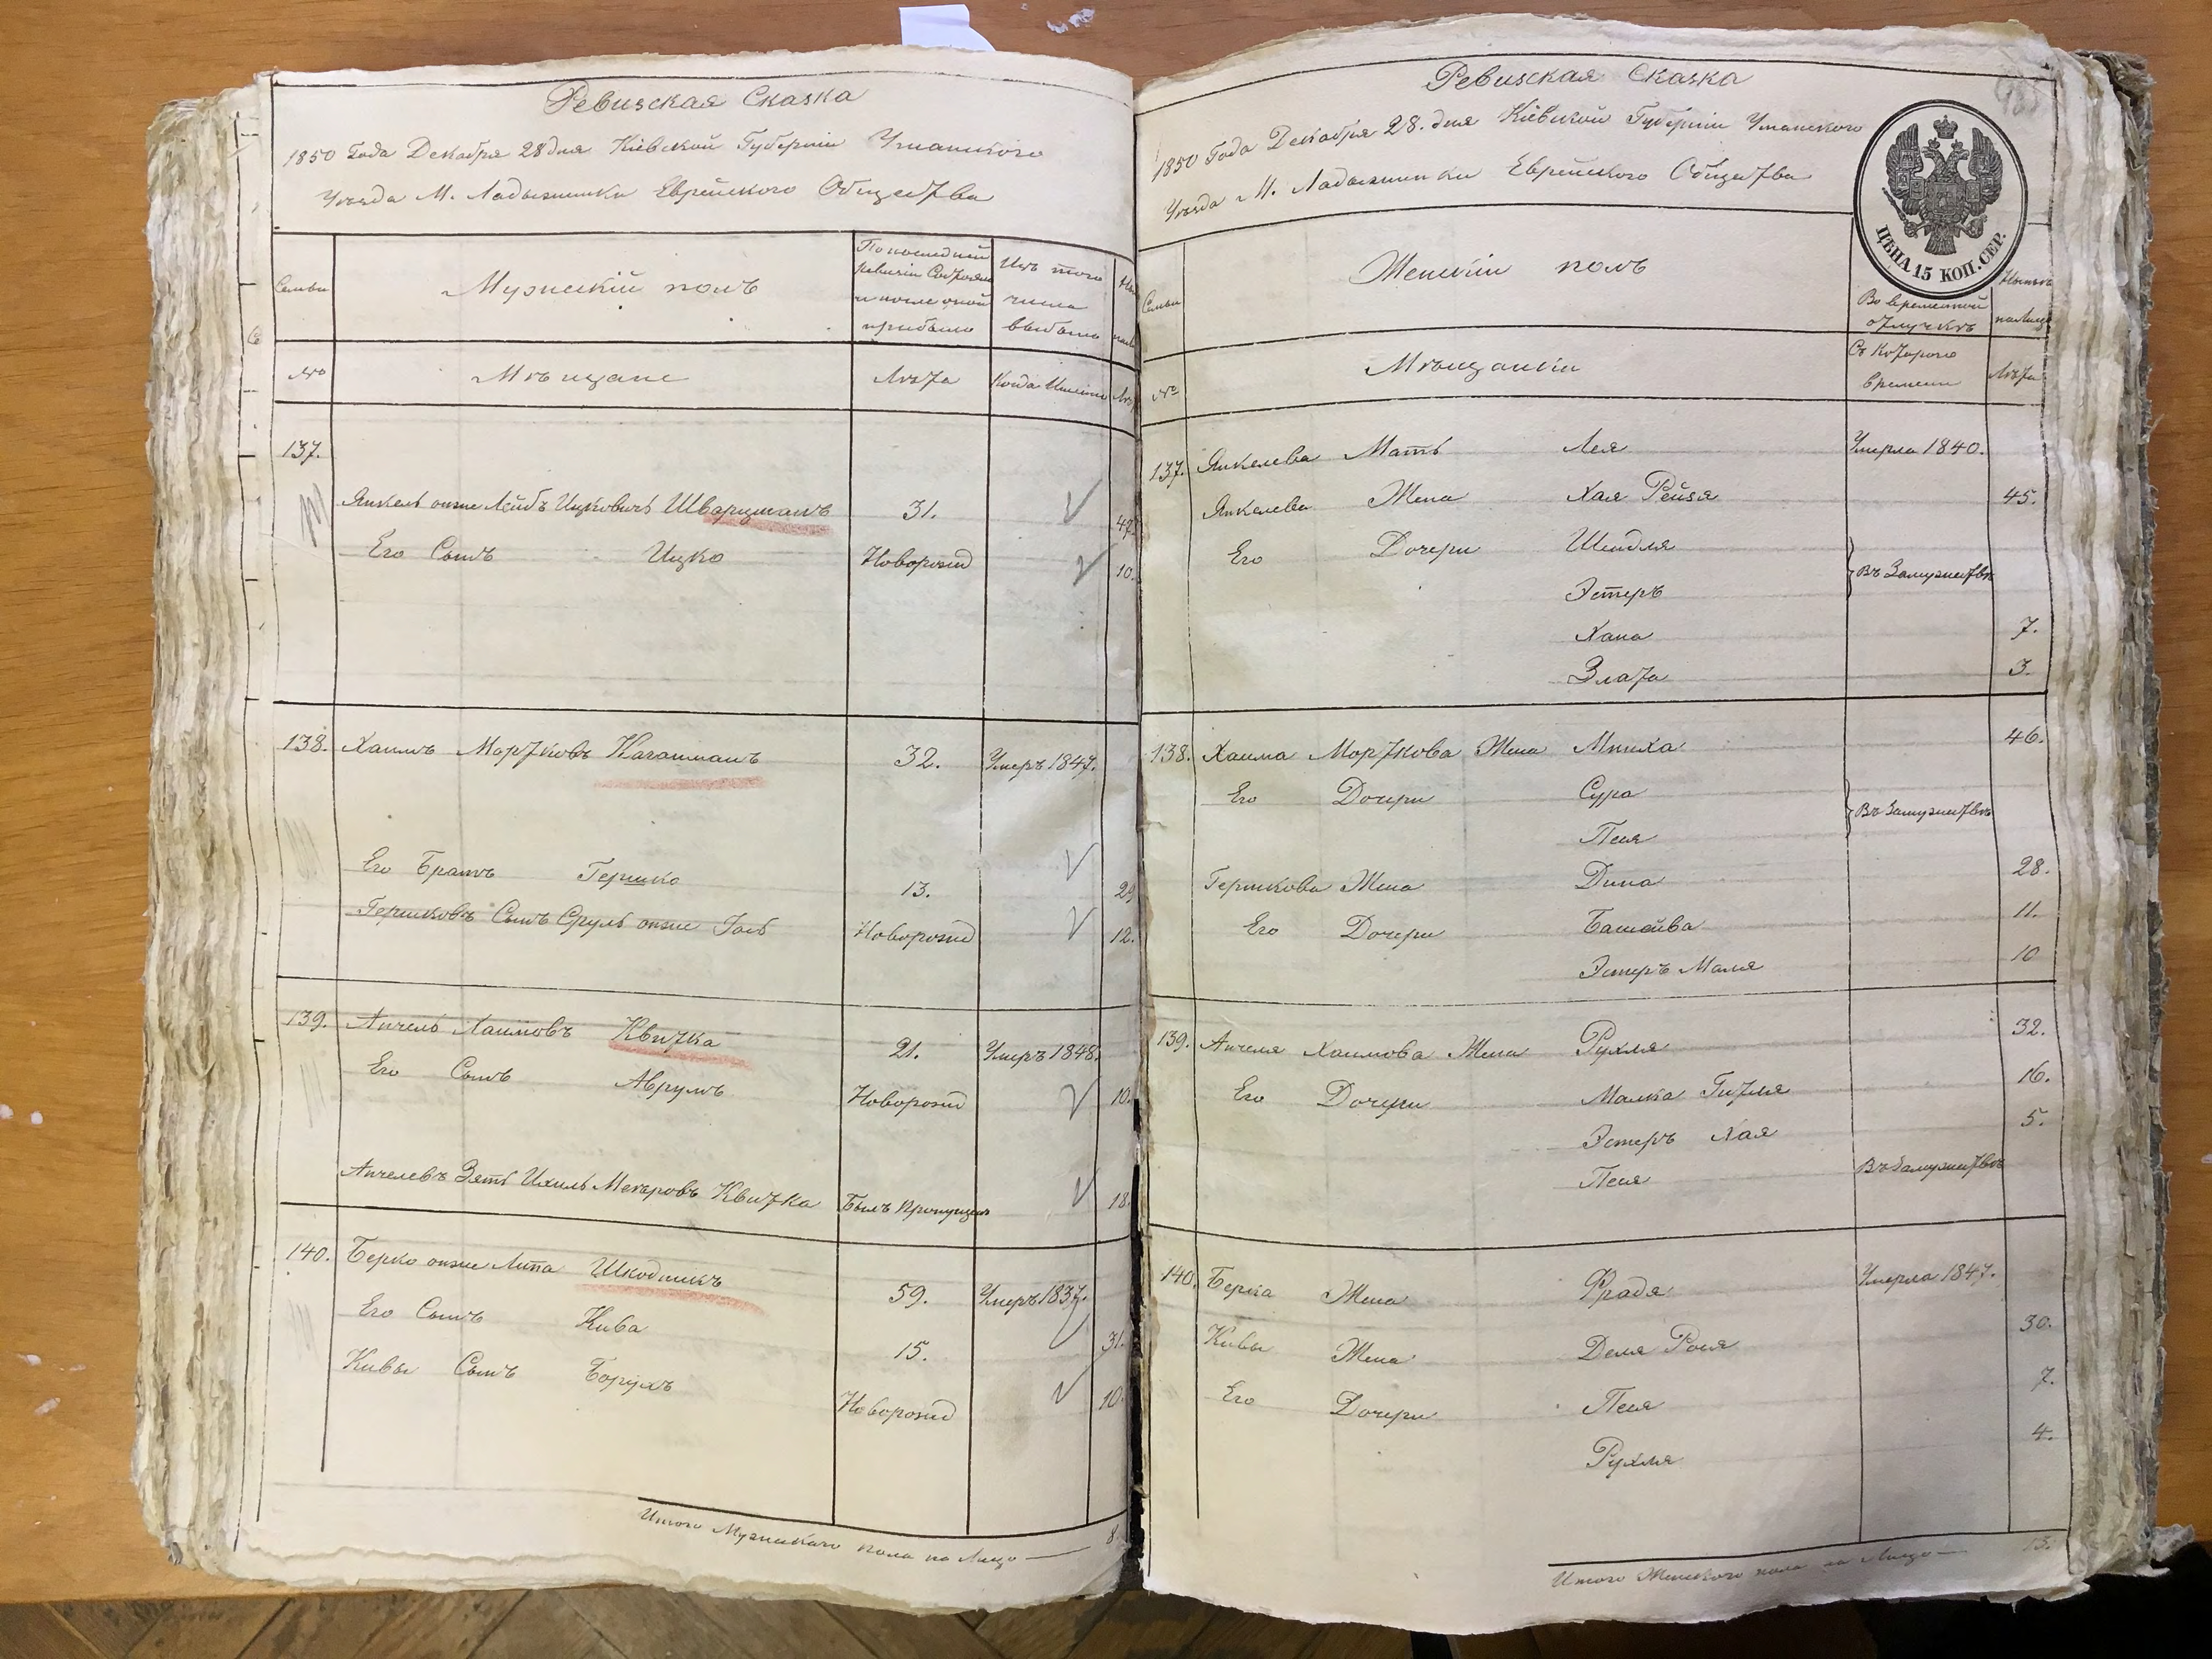 Ревизская Сказка
1850 Года Декабря 28 дня Кіевской Губерніи Уманского
Уѣзда М. Ладыжинки Еврейского Общества
Семьи
Мужескій полъ
По последней
ревизіи Состояло
и после оной
прибыло
Изъ того
числа
выбыло
№
Мѣщане
Лѣта
Когда Именно
137.
Янкель онже Лейбъ Ицковичъ Шварцманъ 31. 47
Его Сынъ Ицко Новорожд 10.
138. Хаимъ Мортковъ Каганманъ 32. Умеръ 1847.
Его Братъ Гершко 13. 29
Гершковъ Сынъ Сруль онже Іосъ Новорожд 12.
139. Анчель Хаимовъ Квитка 21. Умеръ 1848.
Его Сынъ Аврумъ Новорожд 10.
Анчелевъ Зять Ихиль Мееровъ Квитка Былъ Пропущенъ 18.
140. Берко онже Липа Шкодникъ 59. Умеръ 1837.
Его Сынъ Кива 15. 31.
Кивы Сынъ Борухъ Новорожд 10.
Итого Мужескаго пола на Лицо — 8.
Ревизская Сказка
1850 Года Декабря 28. дня Кіевской Губерніи Уманского
Уѣзда М. Ладыжинки Еврейского Общества
ЦѢНА 15 КОП. СЕР.
Семьи
Женскій полъ
Во временной
отлучкѣ
Нынѣ
на Лицо
№
Мѣщанки
Съ Котораго
времени
Лѣта
137. Янкелева Мать Лея Умерла 1840.
Янкелева Жена Хая Рейзя 45.
Его Дочери Шейдля
Въ Замужествѣ
Эстеръ
Хана 7.
Злата 3.
138. Хаима Морткова Жена Миниха 46.
Его Дочери Сура
Въ Замужествѣ
Песя
Гершкова Жена Дина 28.
Его Дочери Башейва 11.
Эстеръ Маля 10
139. Анчеля Хаимова Жена Рухля 32.
Его Дочери Малка Гитля 16.
Эстеръ Хая 5.
Песя Въ Замужествѣ
140. Берка Жена Фрадя Умерла 1847.
Кивы Жена Деля Рося 30.
Его Дочери Песя 7.
Рухля 4.
Итого Женского пола на Лицо — 13.